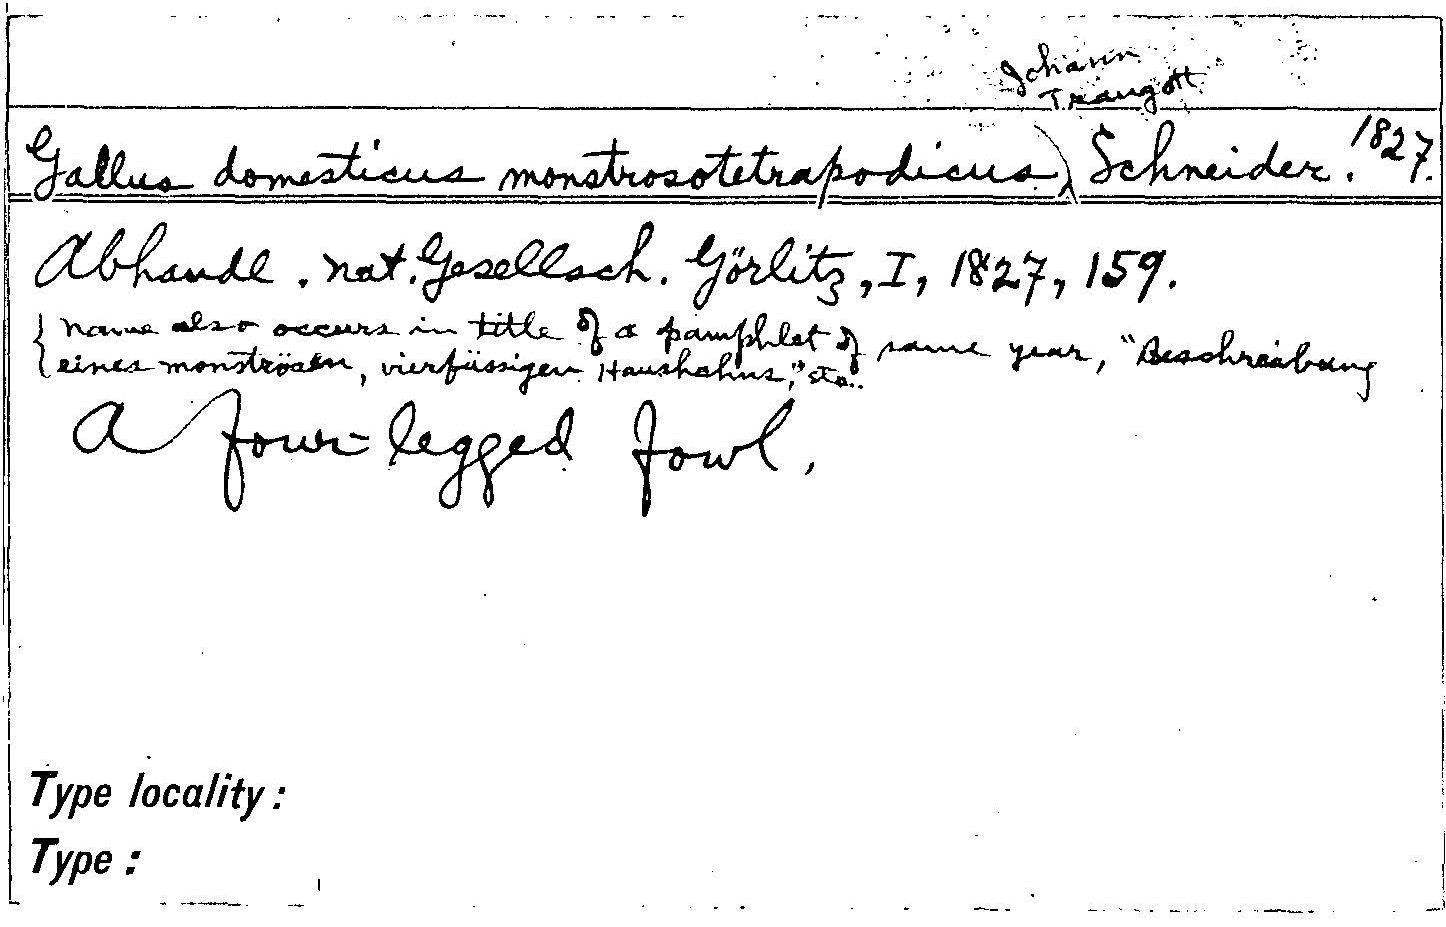 Johann
Traugott
Gallus domesticus monstrosotetrapodicus Schneider. 1827.
Abhandl. nat. Gesellsch. Görlitz, I, 1827, 159.
{ name also occurs in title of a pamphlet of same year, "Beschreibung
eines monströsen, vierfüssigen Haushahns," etc..
A four-legged fowl.
Type locality:
Type: